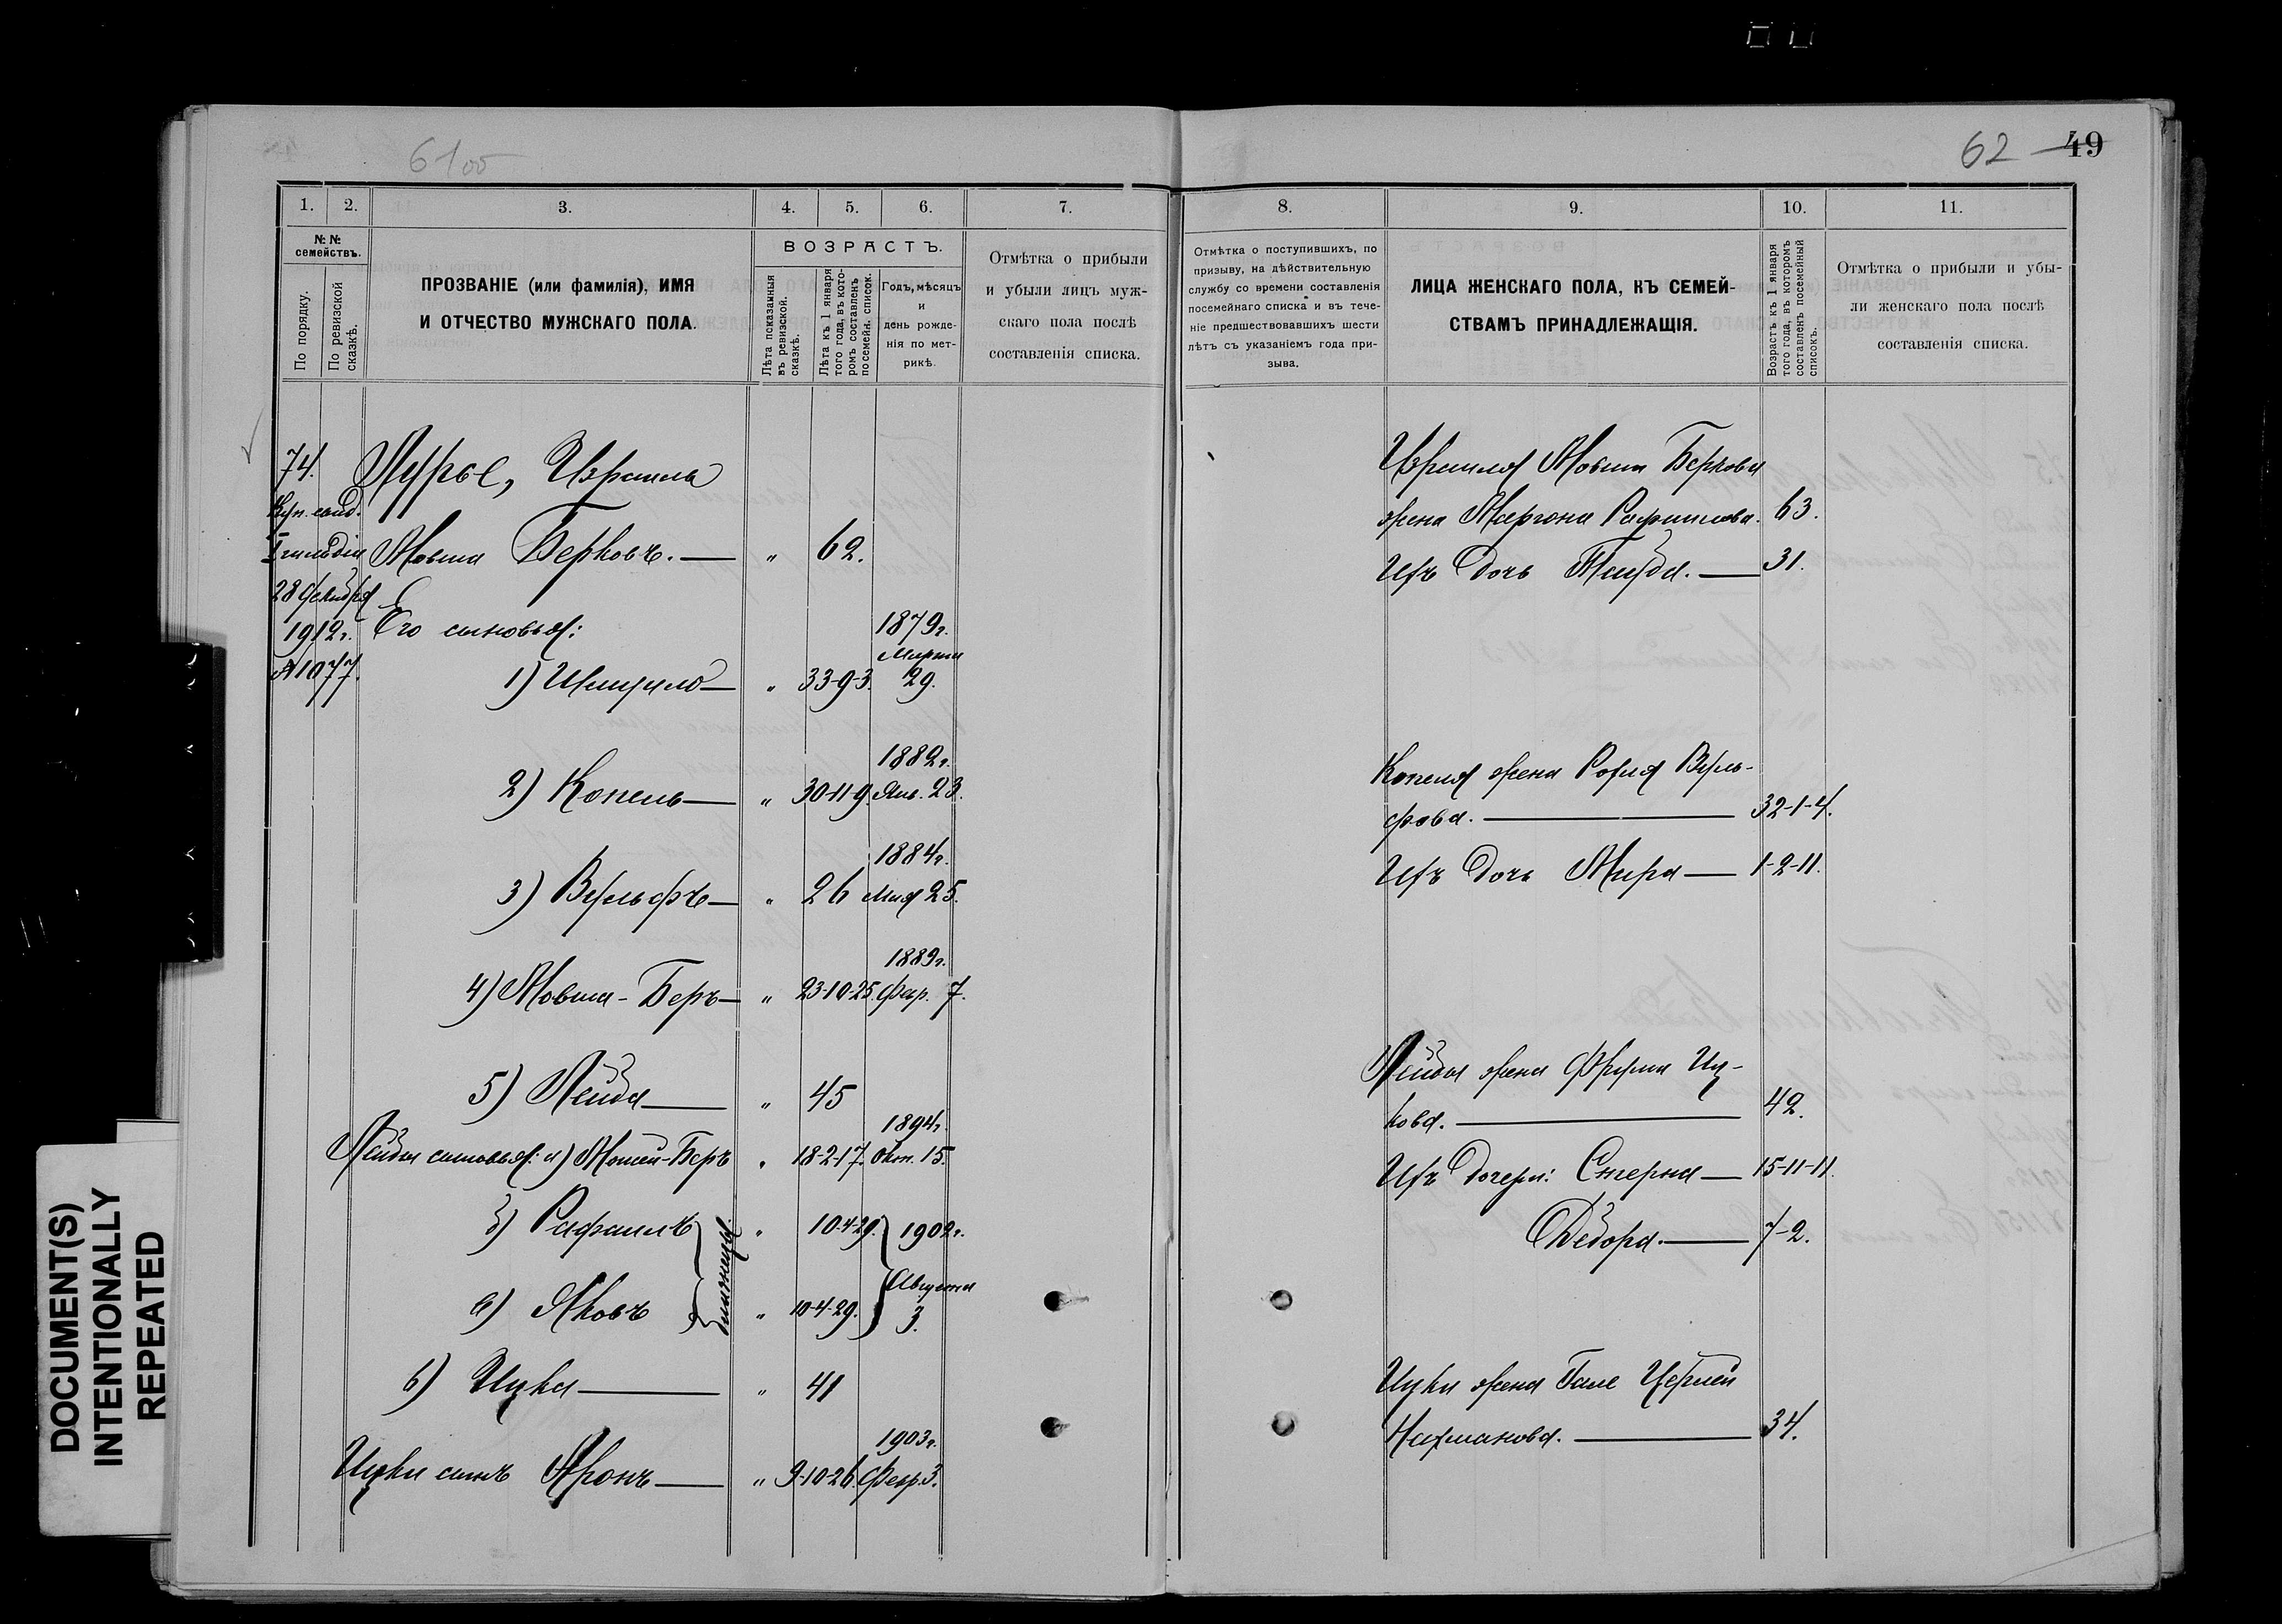 6100
62 49
1. 2. 3. 4. 5. 6. 7.
№ № семействъ.
По порядку.
По ревизской сказкѣ.
ПРОЗВАНІЕ (или фамилія), ИМЯ
И ОТЧЕСТВО МУЖСКАГО ПОЛА.
ВОЗРАСТЪ.
Лѣта показанныя въ ревизской сказкѣ.
Лѣта къ 1 января того года, въ которомъ составленъ посемейн. список.
Годъ, мѣсяцъ
и
день рожде-
нія по мет-
рикѣ.
Отмѣтка о прибыли
и убыли лицъ муж-
скаго пола послѣ
составленія списка.
74. Лурье, Израиль
Куп. свид.
I гильдіи Мовша Берковъ. — " 62.
28 декабря
1912 г. Его сыновья: 1879 г.
№ 1077. Марта
1) Шмуило — " 33-9-3. 29.
1882 г.
2) Копель — " 30-11-9. Янв. 23.
1884 г.
3) Вульфъ — " 26 Мая 25.
1889 г.
4) Мовша-Беръ — " 23-10-25. Февр. 7.
5) Лейба — " 45
1894 г.
Лейбы сыновья: а) Мовшей-Беръ " 18-2-17. Окт. 15.
б) Рафаилъ " 10-4-29. 1902 г.
близнецы.
в) Яковъ " 10-4-29. Августа
3.
6) Ицка — " 41
1903 г.
Ицки сынъ Аронъ — " 9-10-26. Февр. 3.
8. 9. 10. 11.
Отмѣтка о поступившихъ, по
призыву, на дѣйствительную
службу со времени составленія
посемейнаго списка и въ тече-
ніе предшествовавшихъ шести
лѣтъ съ указаніемъ года при-
зыва.
ЛИЦА ЖЕНСКАГО ПОЛА, КЪ СЕМЕЙ-
СТВАМЪ ПРИНАДЛЕЖАЩІЯ.
Возрастъ къ 1 января того года, въ которомъ составленъ посемейный списокъ.
Отмѣтка о прибыли и убы-
ли женскаго пола послѣ
составленія списка.
Израиля Мовши Беркова
жена Рафаилова. 63.
Ихъ дочь — 31.
Копеля жена Рохля Вуль-
фова. — 32-1-4.
Ихъ дочь Мира — 1-2-11.
Лейбы жена Фрума Иц-
кова. — 42.
Ихъ дочери: Стерна — 15-11-11.
Дебора. — 7-2.
Ицки жена
Нахманова. — 34.
DOCUMENT(S)
INTENTIONALLY
REPEATED